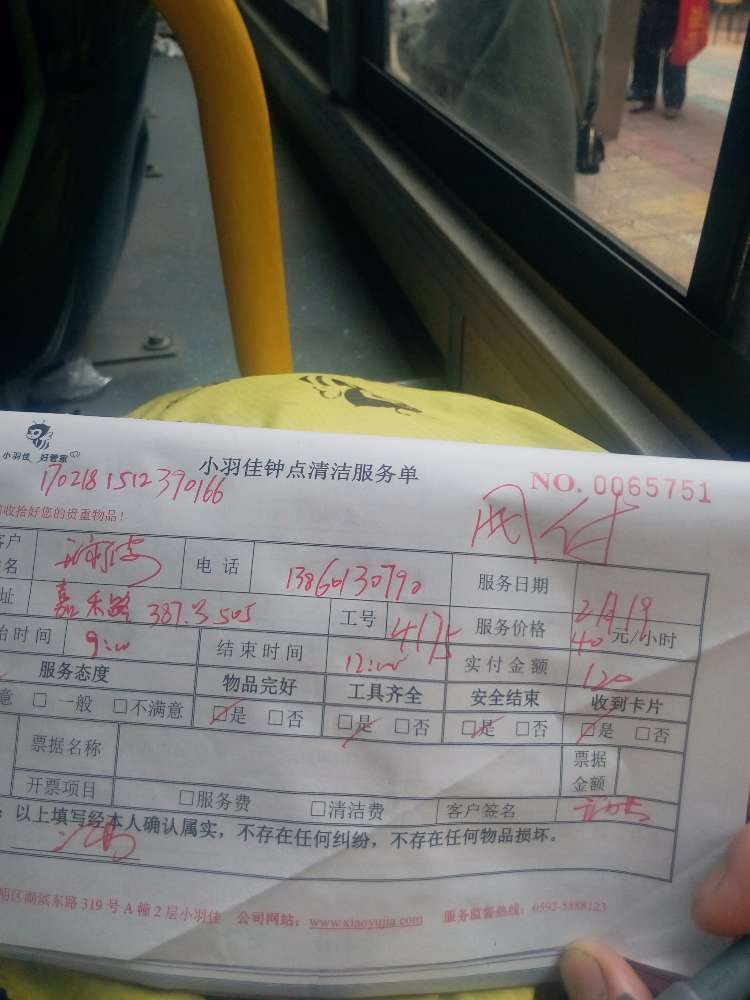 小羽佳 好管家
小羽佳钟点清洁服务单
NO. 0065751
170218 1512390166
收拾好您的贵重物品！
网付
客户
名
电 话 13860130790 服务日期 2月19
址 嘉禾路 387.3.505 工号 4175 服务价格 40 元/小时
始时间 9:00 结束时间 12:00 实付金额 120
服务态度 物品完好 工具齐全 安全结束 收到卡片
意 □ 一般 □不满意 □是 □否 □是 □否 □是 □否 □是 □否
票据名称 票据金额
开票项目 □服务费 □清洁费 客户签名
：以上填写经本人确认属实，不存在任何纠纷，不存在任何物品损坏。
区湖滨东路 319 号 A 幢 2 层小羽佳 公司网站：www.xiaoyujia.com 服务监督热线：0592-5888123